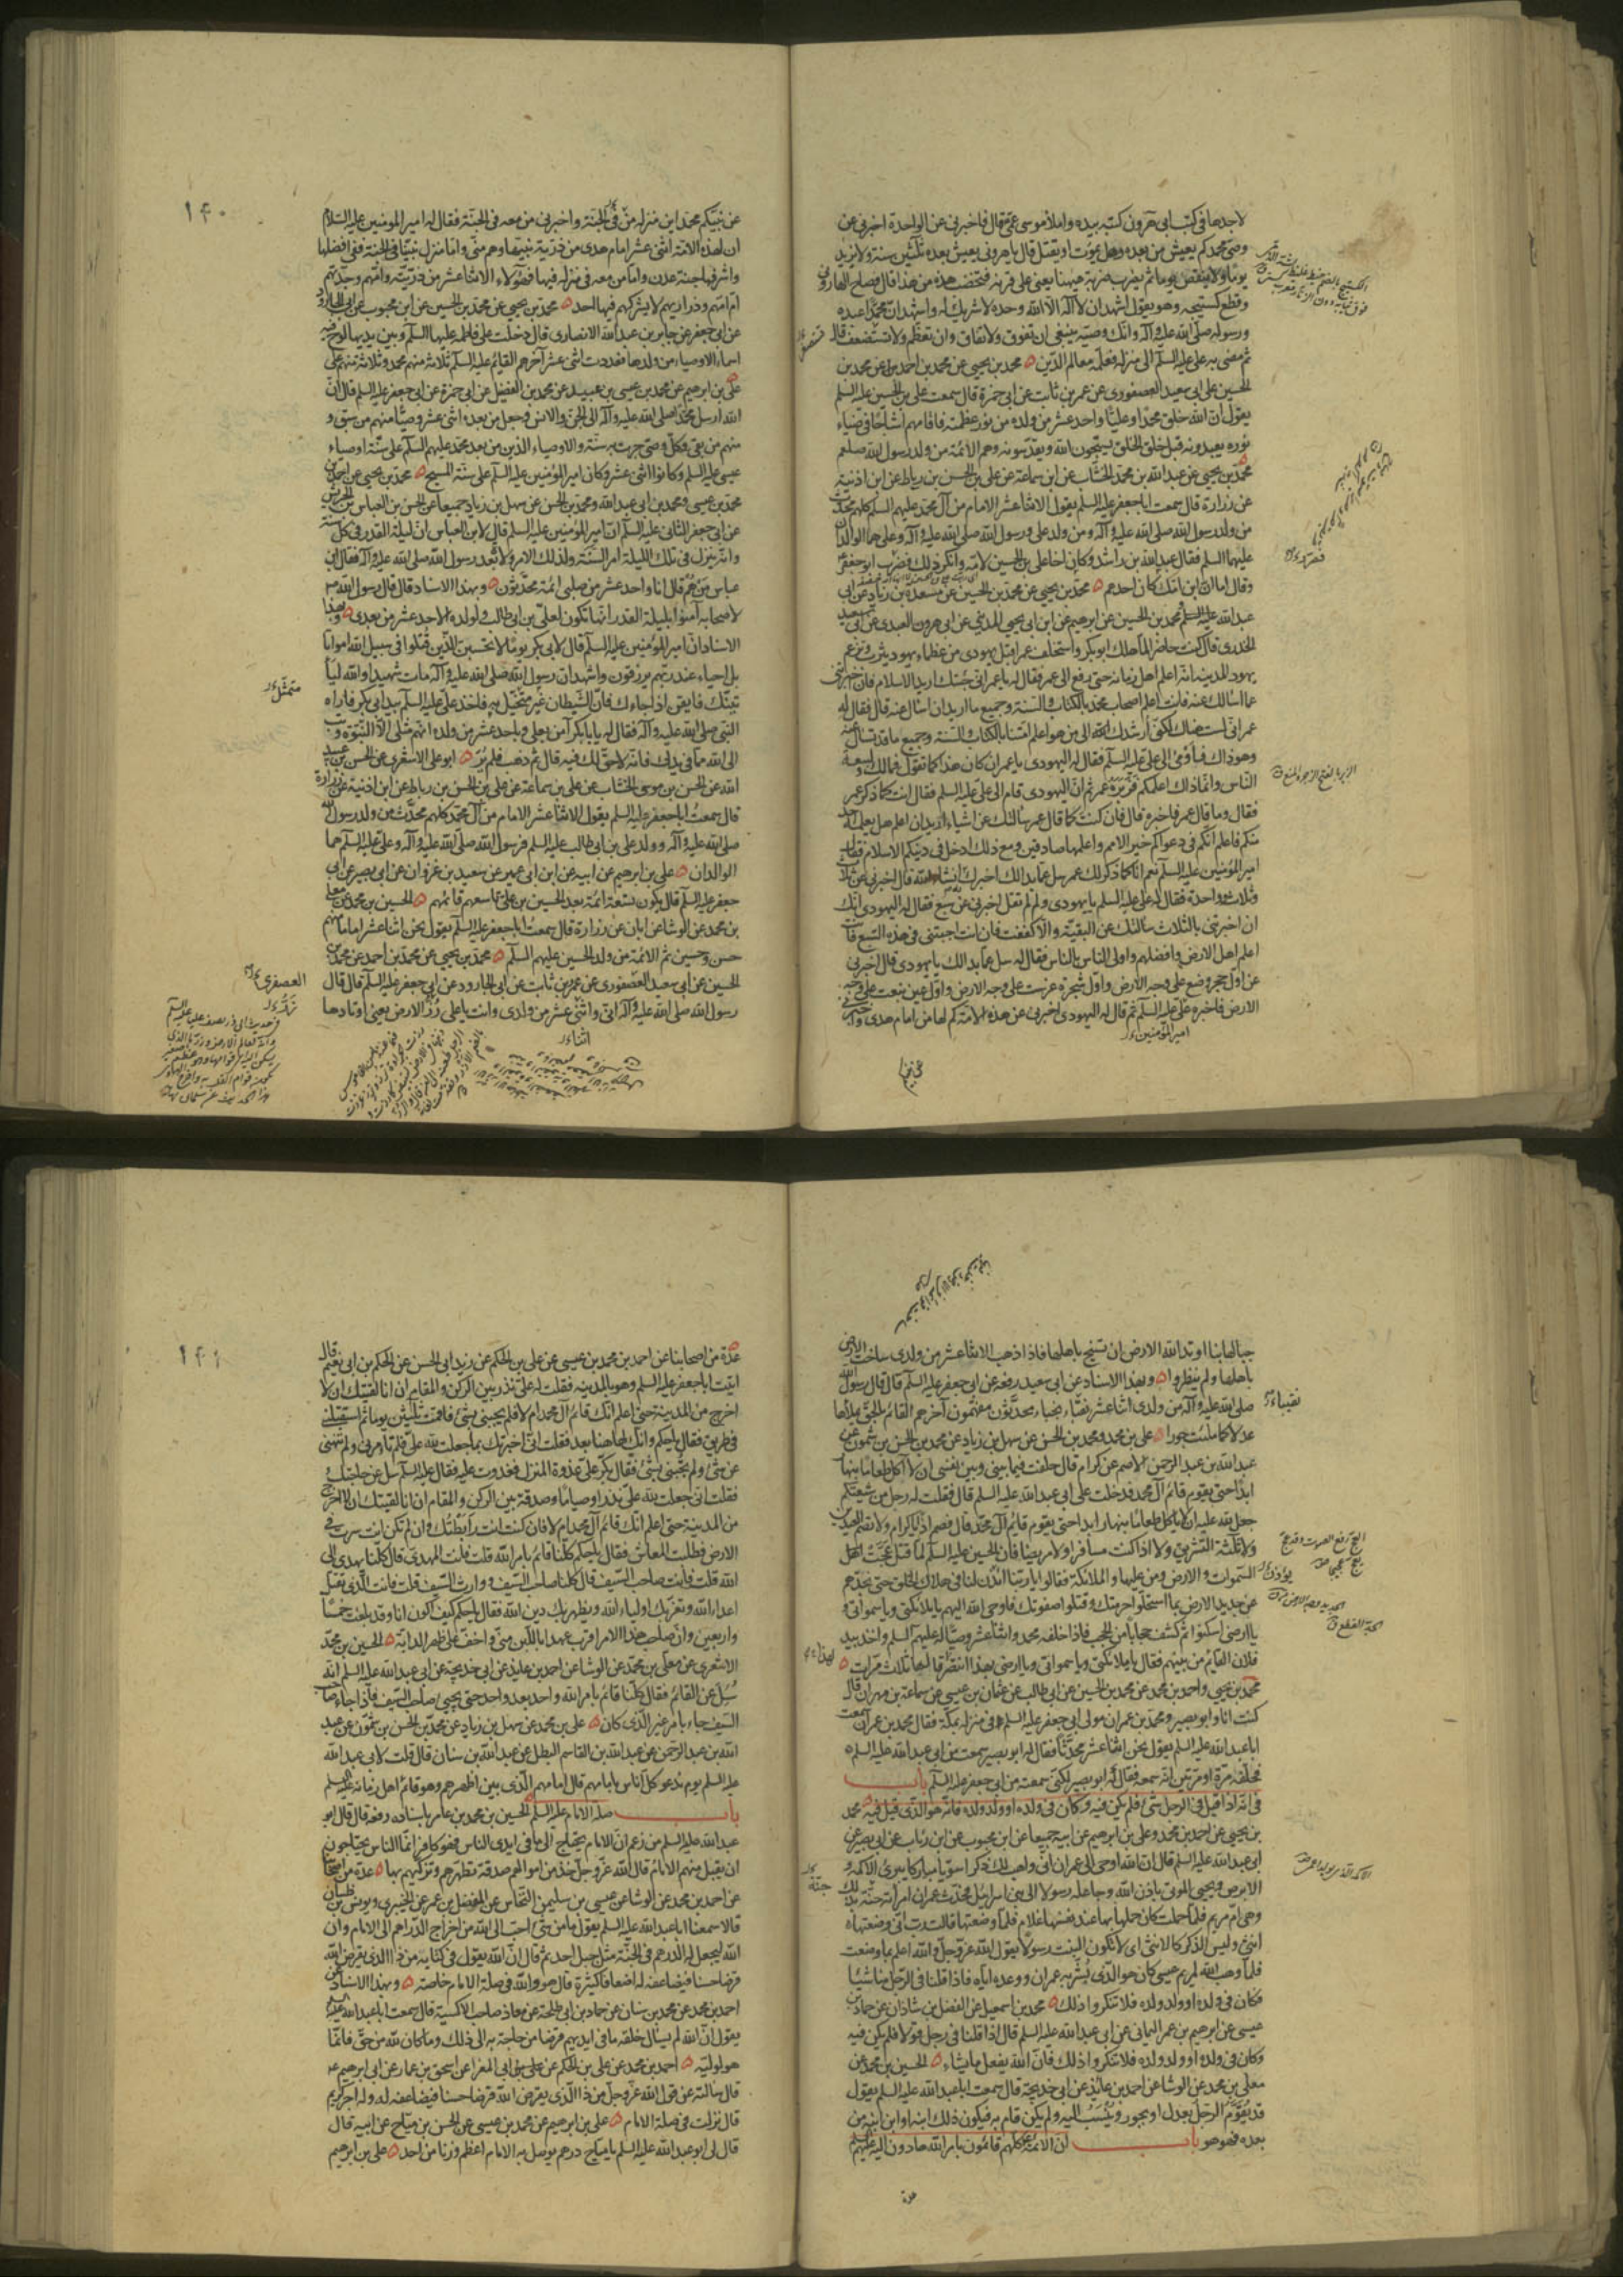 لاجدها فى كتب ابى هرون كتبه بيده واملا موسى عمى قال فاخبرنى عن الواحدة اخبرنى عن
وصى محمد كم يعيش من بعده وهل يموت او يقتل قال يا هرونى يعيش بعده ثلثين سنة ولا يزيد
يوما ولا ينقص يوما ثم يضرب ضربة ههنا يعنى على قرنه فتخضب هذه من هذا قال فصاح الهارونى
وقطع كستيجه وهو يقول اشهد ان لا اله الا الله وحده لا شريك له واشهد ان محمدا عبده
ورسوله صلى الله عليه وآله وانك وصيه ينبغى ان تفوق ولا تفاق وان تعظم ولا تستضعف قال
ثم مضى به على عليه السلم الى منزله فعلمه معالم الدين محمد بن يحيى عن محمد بن احمد عن محمد بن
الحسين عن ابى سعيد العصفورى عن عمر بن ثابت عن ابى حمزة قال سمعت على بن الحسين عليه السلم
يقول ان الله خلق محمدا وعليا واحد عشر من ولده من نور عظمته فاقامهم اشباحا فى ضياء
نوره يعبدونه قبل خلق الخلق يسبحون الله ويقدسونه وهم الائمة من ولد رسول الله صلعم
محمد بن يحيى عن عبد الله بن محمد الخشاب عن ابن سماعة عن على بن الحسن بن رباط عن ابن اذنية
عن زرارة قال سمعت ابا جعفر عليه السلم يقول الاثنا عشر الامام من آل محمد عليهم السلم كلهم محدث
من ولد رسول الله صلى الله عليه وآله ومن ولد على ورسول الله صلى الله عليه وآله وعلى هما الوالدان
عليهما السلم فقال عبد الله بن راشد وكان اخا على بن الحسين لامه وانكر ذلك فضرب ابو جعفر
وقال اما ان ابن امك كان احدهم محمد بن يحيى عن محمد بن الحسين عن مسعدة بن زياد عن ابى
عبد الله عليه السلم ومحمد بن الحسين عن ابرهيم عن ابن ابى يحيى المدينى عن ابى هرون العبدى عن ابى سعيد
الخدرى قال كنت حاضرا لما هلك ابو بكر واستخلف عمر اقبل يهودى من عظماء يهود يثرب وتزعم
يهود المدينة انه اعلم اهل زمانه حتى رفع الى عمر فقال له يا عمر انى جئتك اريد الاسلام فان خبرتنى
عما اسالك عنه فانت اعلم اصحاب محمد بالكتاب والسنة وجميع ما اريد ان اسال عنه قال فقال له
عمر انى لست هناك لكنى ارشدك الى من هو اعلم امتنا بالكتاب والسنة وجميع ما قد تسال عنه
وهو ذاك فاومى الى على عليه السلم فقال له اليهودى يا عمر ان كان هذا كما تقول فمالك ولبيعة
الناس وانما ذاك اعلمكم فزبره عمر ثم ان اليهودى قام الى على عليه السلم فقال انت كما ذكر عمر
فقال وما قال عمر فاخبره قال فان كنت كما قال عمر سالتك عن اشياء اريد ان اعلم هل يعلمه احد
منكم فاعلم انكم فى دعواكم خير الامم واعلمها صادقين ومع ذلك ادخل فى دينكم الاسلام فقال
امير المؤمنين عليه السلم نعم انا كما ذكر لك عمر سل عما بدا لك اخبرك انشاء الله قال اخبرنى عن ثلث
وثلاث وواحدة فقال له على عليه السلم يا يهودى ولم لم تقل اخبرنى عن سبع فقال له اليهودى انك
ان اخبرتنى بالثلاث سالتك عن البقية والا كففت فان انت اجبتنى فى هذه السبع فانت
اعلم اهل الارض وافضلهم واولى الناس بالناس فقال له سل عما بدا لك يا يهودى قال اخبرنى
عن اول حجر وضع على وجه الارض واول شجرة غرست على وجه الارض واول عين نبعت على وجه
الارض فاخبره على عليه السلم ثم قال له اليهودى اخبرنى عن هذه الامة كم لها من امام هدى واخبرنى
امير المؤمنين
١٤٠
عن نبيكم محمد اين منزله فى الجنة واخبرنى من معه فى الجنة فقال له امير المؤمنين عليه السلام
ان لهذه الامة اثنى عشر امام هدى من ذرية نبيها وهم منى واما منزل نبينا فى الجنة ففى افضلها
واشرفها جنة عدن واما من معه فى منزله فيها فهؤلاء الاثنا عشر من ذريته وامهم وجدتهم
ام امهم وذراريهم لا يشركهم فيها احد محمد بن يحيى عن محمد بن الحسين عن ابن محبوب عن ابى الجارود
عن ابى جعفر عن جابر بن عبد الله الانصارى قال دخلت على فاطمة عليها السلم وبين يديها لوح فيه
اسماء الاوصياء من ولدها فعددت اثنى عشر آخرهم القايم عليه السلم ثلاثة منهم محمد وثلاثة منهم على
على بن ابرهيم عن محمد بن عيسى بن عبيد عن محمد بن الفضيل عن ابى حمزة عن ابى جعفر عليه السلم قال ان
الله ارسل محمدا صلى الله عليه وآله الى الجن والانس وجعل من بعده اثنى عشر وصيا منهم من سبق و
منهم من بقى وكل وصى جرت به سنة والاوصياء الذين من بعد محمد عليهم السلم على سنة اوصياء
عيسى عليه السلم وكانوا اثنى عشر وكان امير المؤمنين عليه السلم على سنة المسيح محمد بن يحيى عن احمد بن
محمد بن عيسى ومحمد بن ابى عبد الله ومحمد بن الحسن عن سهل بن زياد جميعا عن الحسن بن العباس بن الحريش
عن ابى جعفر الثانى عليه السلم ان امير المؤمنين عليه السلم قال لابن العباس ان ليلة القدر فى كل سنة
وانه ينزل فى تلك الليلة امر السنة ولذلك الامر ولاة بعد رسول الله صلى الله عليه وآله فقال ابن
عباس من هم قال انا واحد عشر من صلبى ائمة محدثون وبهذا الاسناد قال قال رسول الله ص
لاصحابه آمنوا بليلة القدر انها تكون لعلى بن ابى طالب ولولده الاحد عشر من بعدى وبهذا
الاسناد ان امير المؤمنين عليه السلم قال لابى بكر يوما لا تحسبن الذين قتلوا فى سبيل الله امواتا
بل احياء عند ربهم يرزقون واشهد ان رسول الله صلى الله عليه وآله مات شهيدا والله ليأ
تينك فايقن اذا جاءك فان الشيطان غير متخيل به فاخذ على عليه السلم بيد ابى بكر فاراه
النبى صلى الله عليه وآله فقال له يا بابكر آمن بعلى وباحد عشر من ولده انهم مثلى الا النبوة وتب
الى الله مما فى يدك فانه لا حق لك فيه قال ثم ذهب فلم ير ابو على الاشعرى عن الحسن بن عبيد
الله عن الحسن بن موسى الخشاب عن على بن سماعة عن على بن الحسن بن رباط عن ابن اذنية عن زرارة
قال سمعت ابا جعفر عليه السلم يقول الاثنا عشر الامام من آل محمد كلهم محدث من ولد رسول الله
صلى الله عليه وآله وولد على بن ابى طالب عليه السلم فرسول الله صلى الله عليه وآله وعلى عليه السلم هما
الوالدان على بن ابرهيم عن ابيه عن ابن ابى عمير عن سعيد بن غزوان عن ابى بصير عن ابى
جعفر عليه السلم قال يكون تسعة ائمة بعد الحسين بن على تاسعهم قائمهم الحسين بن محمد عن معلى
بن محمد عن الوشا عن ابان عن زرارة قال سمعت ابا جعفر عليه السلم يقول نحن اثنا عشر اماما منهم
حسن وحسين ثم الائمة من ولد الحسين عليهم السلم محمد بن يحيى عن محمد بن احمد عن محمد بن
الحسين عن ابى سعيد العصفورى عن عمر بن ثابت عن ابى الجارود عن ابى جعفر عليه السلم قال قال
رسول الله صلى الله عليه وآله انى واثنى عشر من ولدى وانت يا على زر الارض يعنى اوتادها
متمثل
العصفرى
اثنا
جبالها بنا اوتد الله الارض ان تسيخ باهلها فاذا ذهب الاثنا عشر من ولدى ساخت الارض
باهلها ولم ينظروا وبهذا الاسناد عن ابى سعيد رفعه عن ابى جعفر عليه السلم قال قال رسول الله
صلى الله عليه وآله من ولدى اثنا عشر نقباء نجباء محدثون مفهمون آخرهم القائم بالحق يملاها
عدلا كما ملئت جورا على بن محمد ومحمد بن الحسن عن سهل بن زياد عن محمد بن الحسن بن شمون عن
عبد الله بن عبد الرحمن الاصم عن كرام قال حلفت فيما بينى وبين نفسى ان لا آكل طعاما بنهار
ابدا حتى يقوم قائم آل محمد فدخلت على ابى عبد الله عليه السلم قال فقلت له رجل من شيعتكم
جعل لله عليه ان لا ياكل طعاما بنهار ابدا حتى يقوم قايم آل محمد قال فصم اذا يا كرام ولا تصم العيدين
ولا ثلثة التشريق ولا اذا كنت مسافرا ولا مريضا فان الحسين عليه السلم لما قتل عجت اهل
السموات والارض ومن عليها والملائكة فقالوا يا ربنا ائذن لنا فى هلاك الخلق حتى نجذهم
عن جديد الارض بما استحلوا حرمتك وقتلوا صفوتك فاوحى الله اليهم يا ملائكتى ويا سمواتى و
يا ارضى اسكنوا ثم كشف حجابا من الحجب فاذا خلفه محمد واثنا عشر وصيا له عليهم السلم واخذ بيد
فلان القايم من بينهم فقال يا ملائكتى ويا سمواتى ويا ارضى بهذا انتصر قالها ثلاث مرات
محمد بن يحيى واحمد بن محمد عن محمد بن الحسين عن ابى طالب عن عثمان بن عيسى عن سماعة بن مهران قال
كنت انا وابو بصير ومحمد بن عمران مولى ابى جعفر عليه السلم فى منزله بمكة فقال محمد بن عمران سمعت
ابا عبد الله عليه السلم يقول نحن اثنا عشر محدثا فقال له ابو بصير سمعت من ابى عبد الله عليه السلم
فحلفه مرة او مرتين انه سمعه فقال له ابو بصير لكنى سمعته من ابى جعفر عليه السلم باب
فى انه اذا قيل فى الرجل شئ فلم يكن فيه وكان فى ولده او ولد ولده فانه هو الذى قيل فيه محمد
بن يحيى عن احمد بن محمد وعلى بن ابرهيم عن ابيه جميعا عن ابن محبوب عن ابن رئاب عن ابى بصير عن
ابى عبد الله عليه السلم قال ان الله اوحى الى عمران انى واهب لك ذكرا سويا مباركا يبرئ الاكمه و
الابرص ويحيى الموتى باذن الله وجاعله رسولا الى بنى اسرائيل فحدث عمران امرأته حنة بذلك
وهى ام مريم فلما حملت كان حملها بها عند نفسها غلام فلما وضعتها قالت رب انى وضعتها
انثى وليس الذكر كالانثى اى لا تكون البنت رسولا يقول الله عز وجل والله اعلم بما وضعت
فلما وهب الله لمريم عيسى كان هو الذى بشر به عمران ووعده اياه فاذا قلنا فى الرجل منا شيئا
فكان فى ولده او ولد ولده فلا تنكروا ذلك محمد بن اسمعيل عن الفضل بن شاذان عن حماد بن
عيسى عن ابرهيم بن عمر اليمانى عن ابى عبد الله عليه السلم قال اذا قلنا فى رجل قولا فلم يكن فيه
وكان فى ولده او ولد ولده فلا تنكروا ذلك فان الله يفعل ما يشاء الحسين بن محمد عن
معلى بن محمد عن الوشا عن احمد بن عائذ عن ابى خديجة قال سمعت ابا عبد الله عليه السلم يقول
قد يقوم الرجل بعدل او بجور وينسب اليه ولم يكن قام به فيكون ذلك ابنه او ابن ابنه من
بعده فهو هو باب ان الائمة كلهم قائمون بامر الله هادون اليه عليهم السلم
نقباء
بهذا
حنة
عدة
١٤١
عدة من اصحابنا عن احمد بن محمد بن عيسى عن على بن الحكم عن زيد ابى الحسن عن الحكم بن ابى نعيم قال
اتيت ابا جعفر عليه السلم وهو بالمدينة فقلت له على نذر بين الركن والمقام ان انا لقيتك ان لا
اخرج من المدينة حتى اعلم انك قائم آل محمد ام لا فلم يجبنى بشئ فاقمت ثلثين يوما ثم استقبلنى
فى طريق فقال يا حكم وانك لهاهنا بعد فقلت انى اخبرتك بما جعلت لله على فلم تامرنى ولم تنهنى
عن شئ ولم تجبنى بشئ فقال بكر على غدوة المنزل فغدوت عليه فقال عليه السلم سل عن حاجتك
فقلت انى جعلت لله على نذرا وصياما وصدقة بين الركن والمقام ان انا لقيتك ان لا اخرج
من المدينة حتى اعلم انك قائم آل محمد ام لا فان كنت انت رابطتك وان لم تكن انت سرت فى
الارض فطلبت المعاش فقال يا حكم كلنا قائم بامر الله قلت فانت المهدى قال كلنا يهدى الى
الله قلت فانت صاحب السيف قال كلنا صاحب السيف ووارث السيف قلت فانت الذى تقتل
اعداء الله وتعز بك اولياء الله ويظهر بك دين الله فقال يا حكم كيف اكون انا وقد بلغت خمسا
واربعين وان صاحب هذا الامر اقرب عهدا باللبن منى واخف على ظهر الدابة الحسين بن محمد
الاشعرى عن معلى بن محمد عن الوشا عن احمد بن عائذ عن ابى خديجة عن ابى عبد الله عليه السلم انه
سئل عن القائم فقال كلنا قائم بامر الله واحد بعد واحد حتى يجيئ صاحب السيف فاذا جاء صاحب
السيف جاء بامر غير الذى كان على بن محمد عن سهل بن زياد عن محمد بن الحسن بن شمون عن عبد
الله بن عبد الرحمن عن عبد الله بن القاسم البطل عن عبد الله بن سنان قال قلت لابى عبد الله
عليه السلم يوم ندعو كل اناس بامامهم قال امامهم الذى بين اظهرهم وهو قائم اهل زمانه عليه السلم
باب صلة الامام عليه السلم الحسين بن محمد بن عامر باسناده رفعه قال قال ابو
عبد الله عليه السلم من زعم ان الامام يحتاج الى ما فى ايدى الناس فهو كافر انما الناس يحتاجون
ان يقبل منهم الامام قال الله عز وجل خذ من اموالهم صدقة تطهرهم وتزكيهم بها عدة من اصحابنا
عن احمد بن محمد عن الوشا عن عيسى بن سليمن النحاس عن المفضل بن عمر عن الخيبرى ويونس بن ظبيان
قالا سمعنا ابا عبد الله عليه السلم يقول ما من شئ احب الى الله من اخراج الدراهم الى الامام وان
الله ليجعل له الدرهم فى الجنة مثل جبل احد ثم قال ان الله يقول فى كتابه من ذا الذى يقرض الله
قرضا حسنا فيضاعفه له اضعافا كثيرة قال هو والله فى صلة الامام خاصة وبهذا الاسناد عن
احمد بن محمد عن محمد بن سنان عن حماد بن ابى طلحة عن معاذ صاحب الاكسية قال سمعت ابا عبد الله عليه السلم
يقول ان الله لم يسال خلقه ما فى ايديهم قرضا من حاجة به الى ذلك وما كان لله من حق فانما
هو لوليه احمد بن محمد عن على بن الحكم عن على بن ابى المغرا عن اسحق بن عمار عن ابى ابرهيم ع
قال سالته عن قول الله عز وجل من ذا الذى يقرض الله قرضا حسنا فيضاعفه له وله اجر كريم
قال نزلت فى صلة الامام على بن ابرهيم عن محمد بن عيسى عن الحسن بن مياح عن ابيه قال
قال لى ابو عبد الله عليه السلم يا مياح درهم يوصل به الامام اعظم وزنا من احد على بن ابرهيم